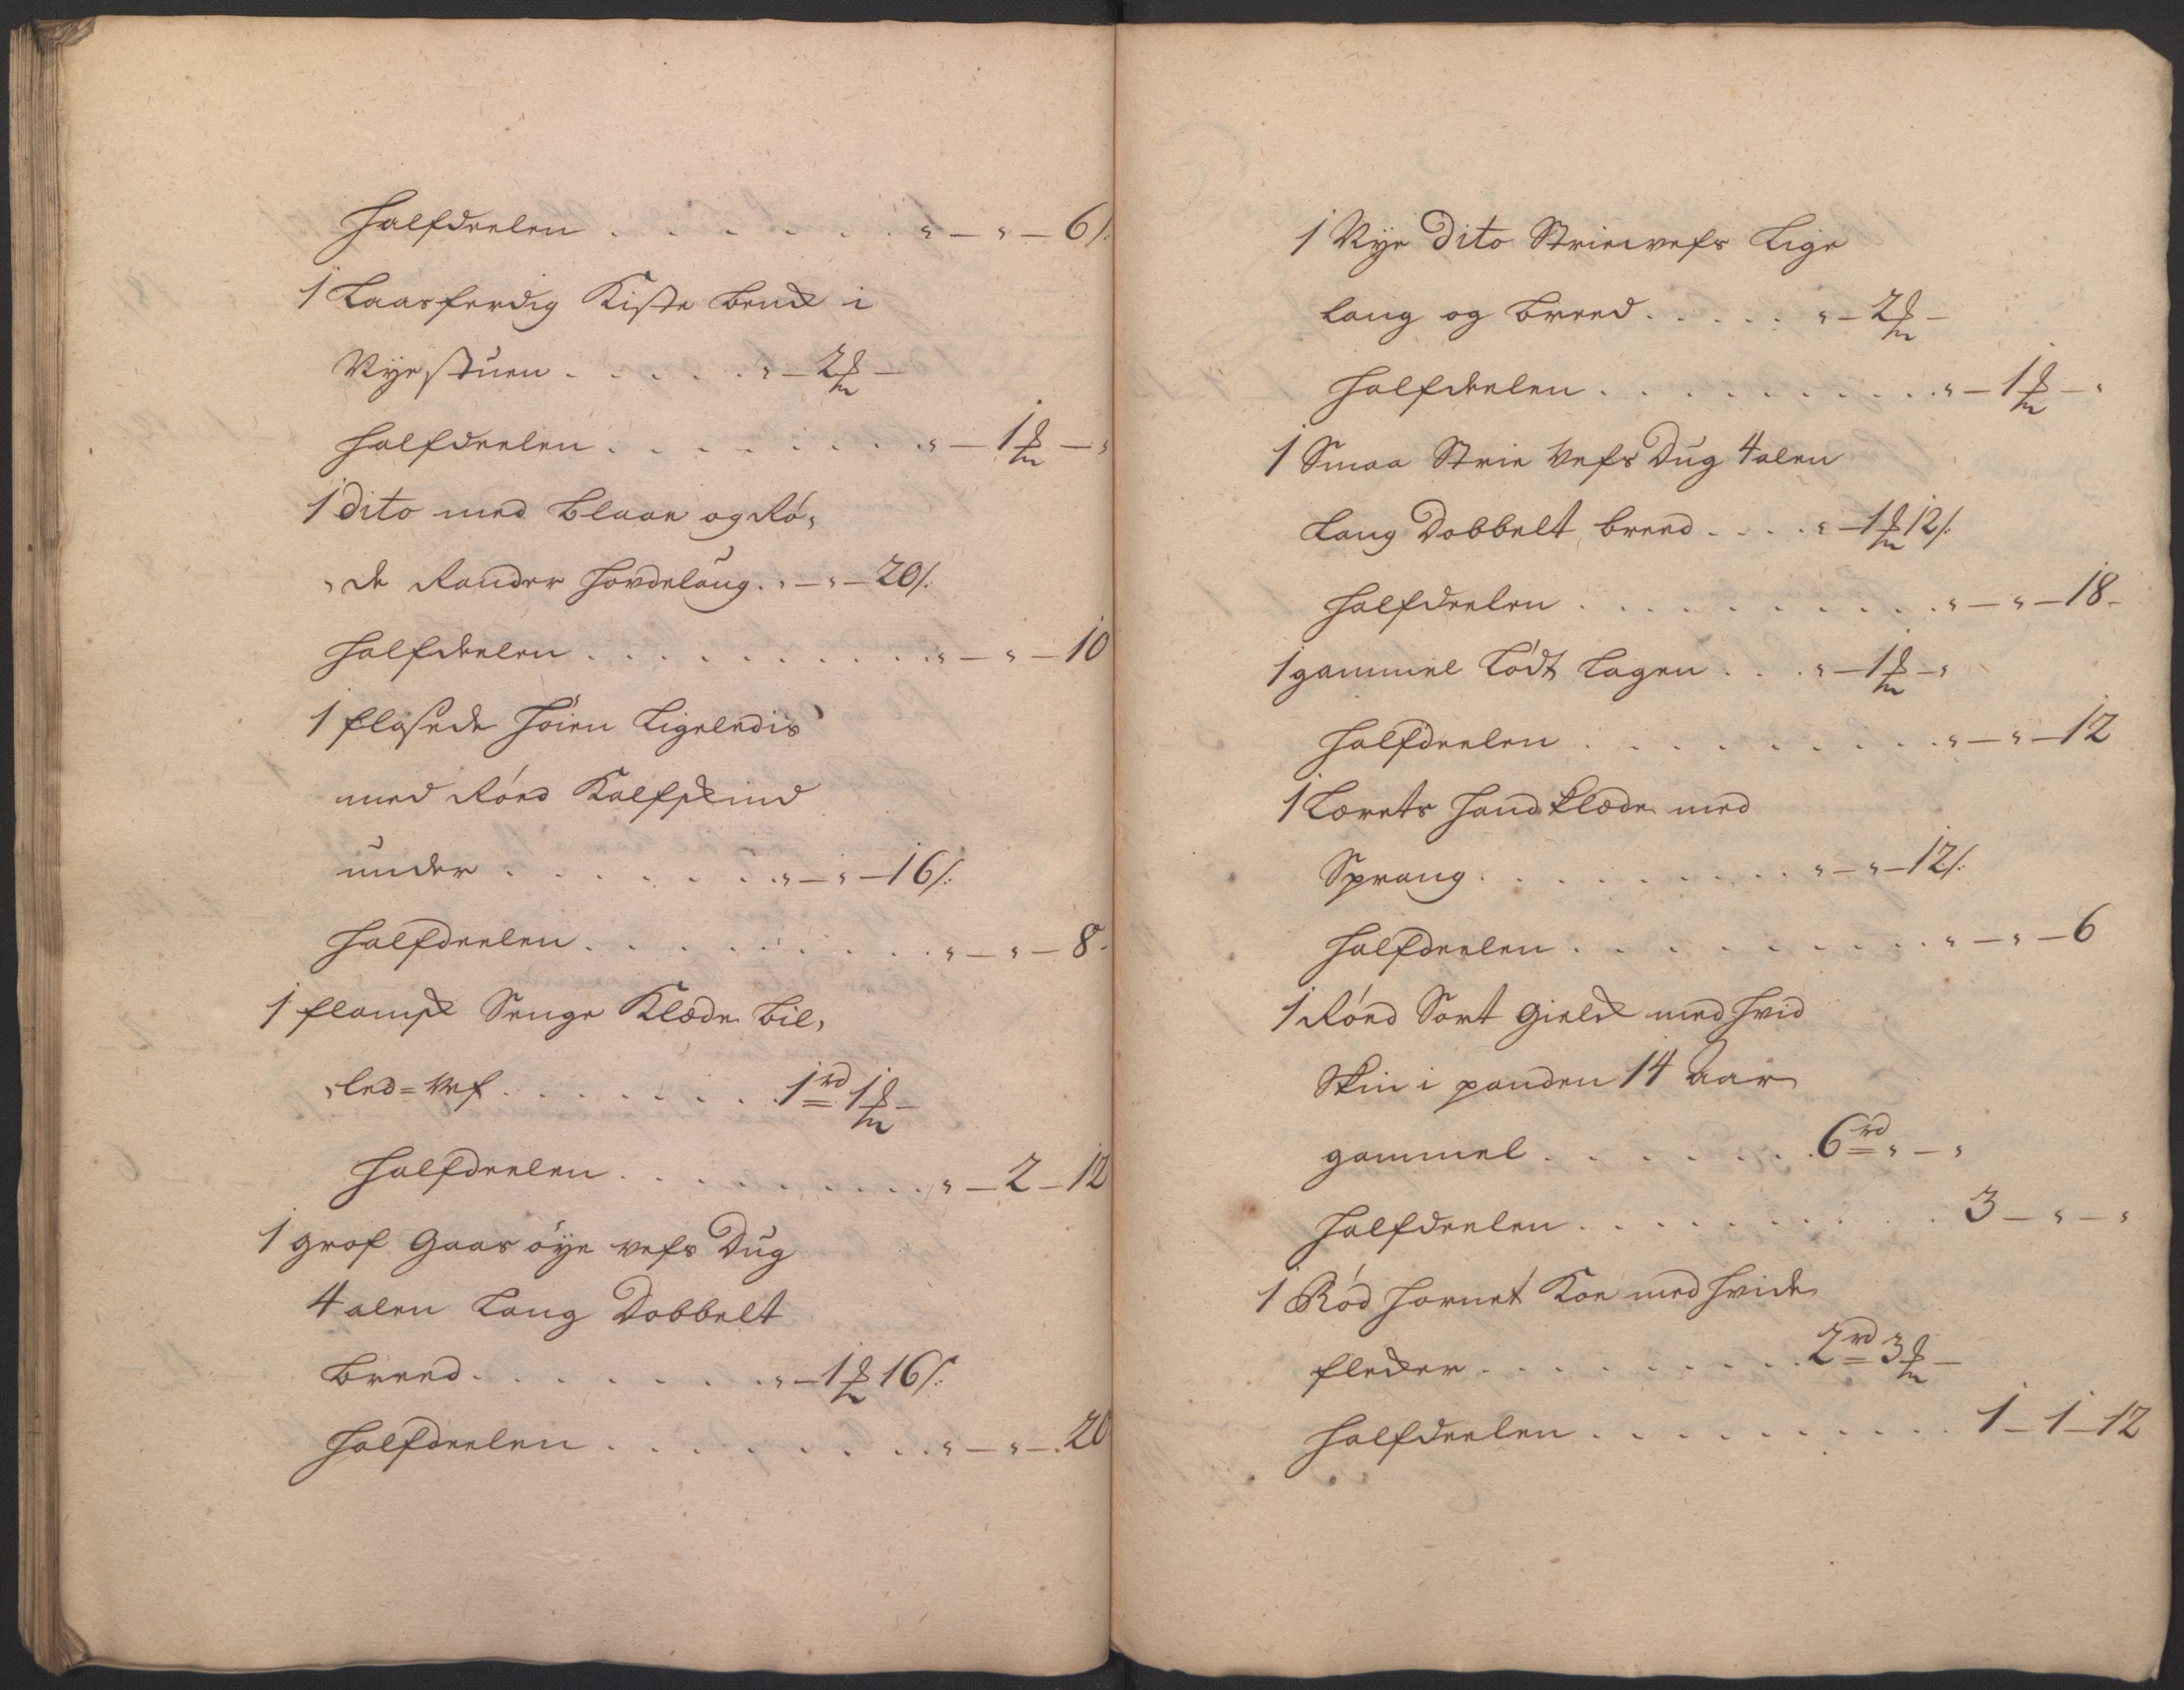 Halfdeelen . . . . . . . „ — „ — 6 s:
1 Laasferdig Kiste benck i
Nyestuen . . . . . . „ — 2 mk —
Halfdeelen . . . . . . . . „ — 1 mk — „
1 dito med blaae og Rö„
„de Rander hovdelaug . „ — „ — 20 s:
Halfdeelen . . . . . . . . . . „ — „ — 10
1 flosede Höien Ligeledis
med Röed Kalfskind
under . . . . . . . „ — „ — 16 s:
Halfdeelen . . . . . . . . . . „ — „ — 8 -
1 flamsk Senge Klæde bil„
„led = Vef . . . . . . . . 1 rd 1 mk —
Halfdeelen . . . . . . . . . „ — 2 — 12
1 grof Gaas öye vefs Dug
4 alen Lang Dobbelt
breed . . . . . . . . „ — 1 mk 16 s:
Halfdeelen . . . . . . . . „ — „ — 20
1 Nye Dito Strievefs Lige
lang og breed . . . . . „ — 2 mk —
Halfdeelen . . . . . . . . . . „ — 1 mk — „
1 Smaa Strie Vefs Dug 4 alen
Lang Dobbelt breed . . . . „ — 1 mk 12 s:
Halfdeelen . . . . . . . . . . „ — „ — 18 -
1 gammel Lödt Lagen . . . „ — 1 mk — „
Halfdeelen . . . . . . . . . . „ — „ — 12
1 Lerets Handklæde med
Sprang . . . . . . . . . . „ — „ — 12 s:
Halfdeelen . . . . . . . . . . „ — „ — 6
1 Röed Sort Gield med hvid
Skin i panden 14 Aar
gammel . . . . . . . . 6 rd „ — „
Halfdeelen . . . . . . . . . . 3 — „ — „
1 Röd hornet Koe med hvide
flecker . . . . . . . . . . 2 rd 3 mk —
Halfdeelen . . . . . . . . . . 1 — 1 — 12